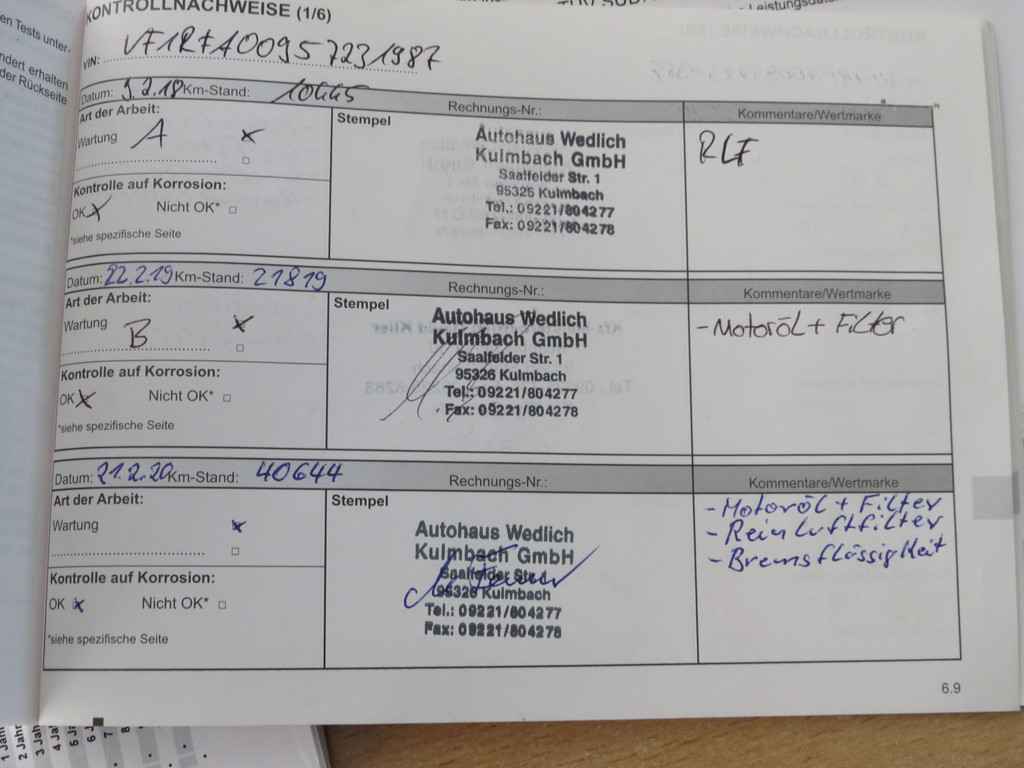 KONTROLLNACHWEISE (1/6)
VIN: VF1RFA00957231987
Datum: 9.2.18 Km-Stand: 10445
Rechnungs-Nr.:
Kommentare/Wertmarke
Art der Arbeit:
Wartung A
Kontrolle auf Korrosion:
OK Nicht OK*
*siehe spezifische Seite
Stempel
Autohaus Wedlich
Kulmbach GmbH
Saalfelder Str. 1
95326 Kulmbach
Tel.: 09221/804277
Fax: 09221/804278
RLF
Datum: 22.2.19 Km-Stand: 21819
Rechnungs-Nr.:
Kommentare/Wertmarke
Art der Arbeit:
Wartung B
Kontrolle auf Korrosion:
OK Nicht OK*
*siehe spezifische Seite
Stempel
Autohaus Wedlich
Kulmbach GmbH
Saalfelder Str. 1
95326 Kulmbach
Tel.: 09221/804277
Fax: 09221/804278
- Motoröl + Filter
Datum: 21.2.20 Km-Stand: 40644
Rechnungs-Nr.:
Kommentare/Wertmarke
Art der Arbeit:
Wartung
Kontrolle auf Korrosion:
OK Nicht OK*
*siehe spezifische Seite
Stempel
Autohaus Wedlich
Kulmbach GmbH
Saalfelder Str. 1
95326 Kulmbach
Tel.: 09221/804277
Fax: 09221/804278
- Motoröl + Filter
- Reinluftfilter
- Bremsflössigkeit
6.9
en Tests unter-
ndert erhalten
der Rückseite
1 Jahr
2 Jahr
3 Jahr